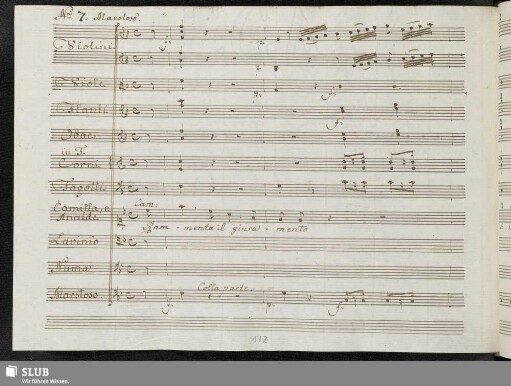 No. 7. Maestoso.
Violini
Viole
Flauti
Oboe
in F.
Corni
Fagotti
Camilla, e
Araldi
Cam:
Ram - menta il giura - mento
Lavinio
Numa
Maestoso.
Colla parte
172
SLUB
Wir führen Wissen.